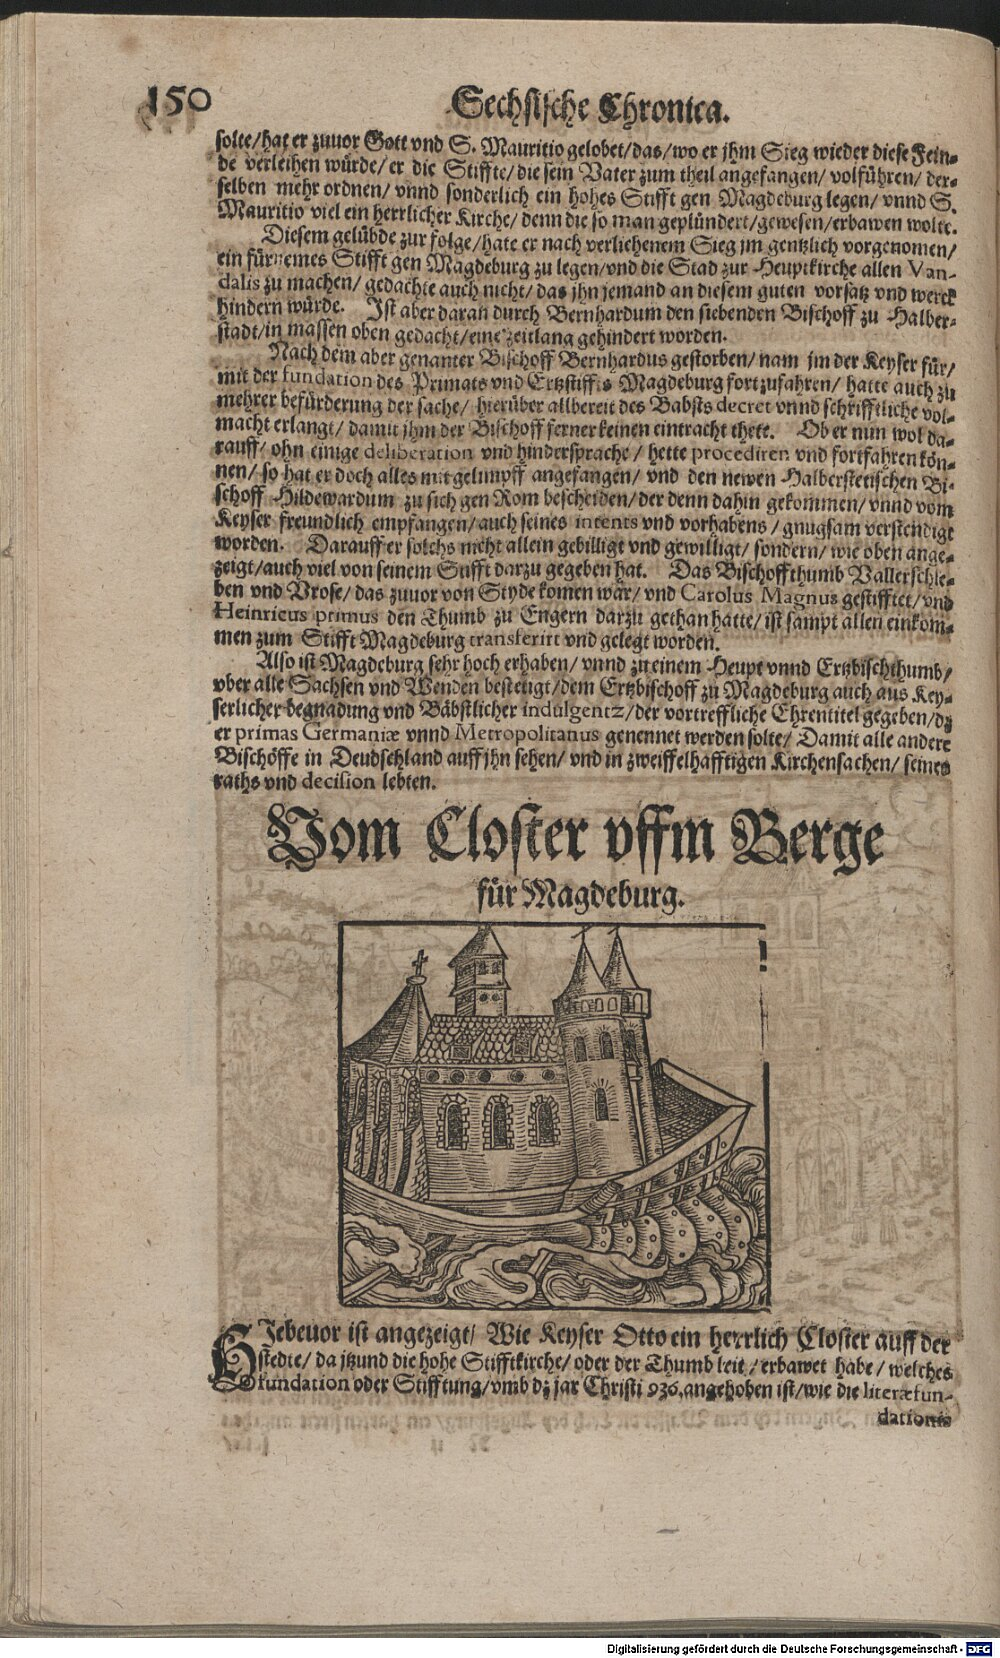 150
Sechsische Chronica.
solte/ hat er zuuor Gott vnd S. Mauritio gelobet/ das/ wo er jhm Sieg wieder diese Fein-
de verleihen würde/ er die Stiffte/ die sein Vater zum theil angefangen/ volführen/ der-
selben mehr ordnen/ vnnd sonderlich ein hohes Stifft gen Magdeburg legen/ vnnd S.
Mauritio viel ein herrlicher Kirche/ denn die so man geplündert/ gewesen/ erbawen wolte.
Diesem gelübde zur folge/ hate er nach verliehenem Sieg jm gentzlich vorgenomen/
ein fürnemes Stifft gen Magdeburg zu legen/ vnd die Stad zur Heuptkirche allen Van-
dalis zu machen/ gedachte auch nicht/ das jhn jemand an diesem guten vorsatz vnd werck
hindern würde. Ist aber daran durch Bernhardum den siebenden Bischoff zu Halber-
stadt/ in massen oben gedacht/ eine zeitlang gehindert worden.
Nach dem aber genanter Bischoff Bernhardus gestorben/ nam jm der Keyser für/
mit der fundation des Primats vnd Ertzstiffts Magdeburg fortzufahren/ hatte auch zu
mehrer befürderung der sache/ hierüber allbereit des Babsts decret vnnd schrifftliche vol-
macht erlangt/ damit jhm der Bischoff ferner keinen eintracht thete. Ob er nun wol da-
rauff/ ohn einige deliberation vnd hindersprache/ hette procediren vnd fortfahren kön-
nen/ so hat er doch alles mit gelimpff angefangen/ vnd den newen Halberstetischen Bi-
schoff Hildewardum zu sich gen Rom bescheiden/ der denn dahin gekommen/ vnnd vom
Keyser freundlich empfangen/ auch seines intents vnd vorhabens/ gnugsam verstendigt
worden. Darauff er solchs nicht allein gebilligt vnd gewilligt/ sondern/ wie oben ange-
zeigt/ auch viel von seinem Stifft darzu gegeben hat. Das Bischoffthumb Vallerschle-
ben vnd Vrose/ das zuuor von Styde komen wär/ vnd Carolus Magnus gestifftet/ vnd
Heinricus primus den Thumb zu Engern darzu gethan hatte/ ist sampt allen einkom-
men zum Stifft Magdeburg transferirt vnd gelegt worden.
Also ist Magdeburg sehr hoch erhaben/ vnnd zu einem Heupt vnnd Ertzbischthumb/
vber alle Sachsen vnd Wenden bestetigt/ dem Ertzbischoff zu Magdeburg auch aus Key-
serlicher begnadung vnd Bäbstlicher indulgentz/ der vortreffliche Ehrentitel gegeben/ dz
er primas Germaniæ vnnd Metropolitanus genennet werden solte/ Damit alle andere
Bischöffe in Deudschland auff jhn sehen/ vnd in zweiffelhafftigen Kirchensachen/ seines
raths vnd decision lebten.
Vom Closter vffm Berge
für Magdeburg.
HJebeuor ist angezeigt/ Wie Keyser Otto ein herrlich Closter auff der
stedte/ da jtzund die hohe Stifftkirche/ oder der Thumb leit/ erbawet habe/ welches
fundation oder Stifftung/ vmb dz jar Christi 936. angehoben ist/ wie die literæ fun-
dationis
Digitalisierung gefördert durch die Deutsche Forschungsgemeinschaft - DFG